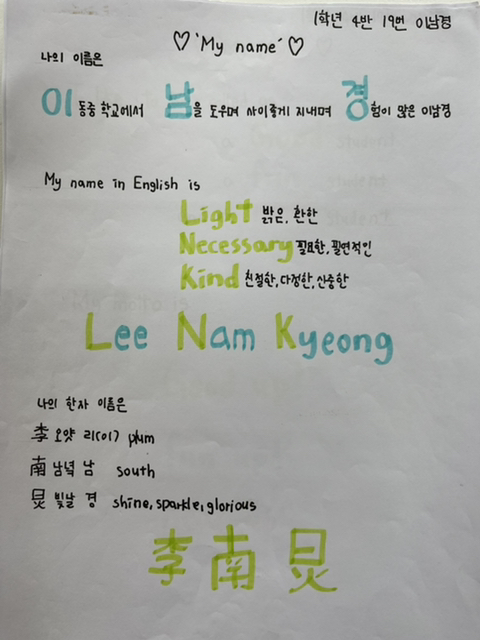 1학년 4반 19번 이남경
♡'My name'♡
나의 이름은
이동중 학교에서 남을 도우며 사이좋게 지내며 경험이 많은 이남경
My name in English is
Light 밝은, 환한
Necessary 필요한, 필연적인
Kind 친절한, 다정한, 산중한
Lee Nam Kyeong
나의 한자 이름은
李 오얏 리(이) plum
南 남녘 남 south
炅 빛날 경 shine, sparkle, glorious
李南炅